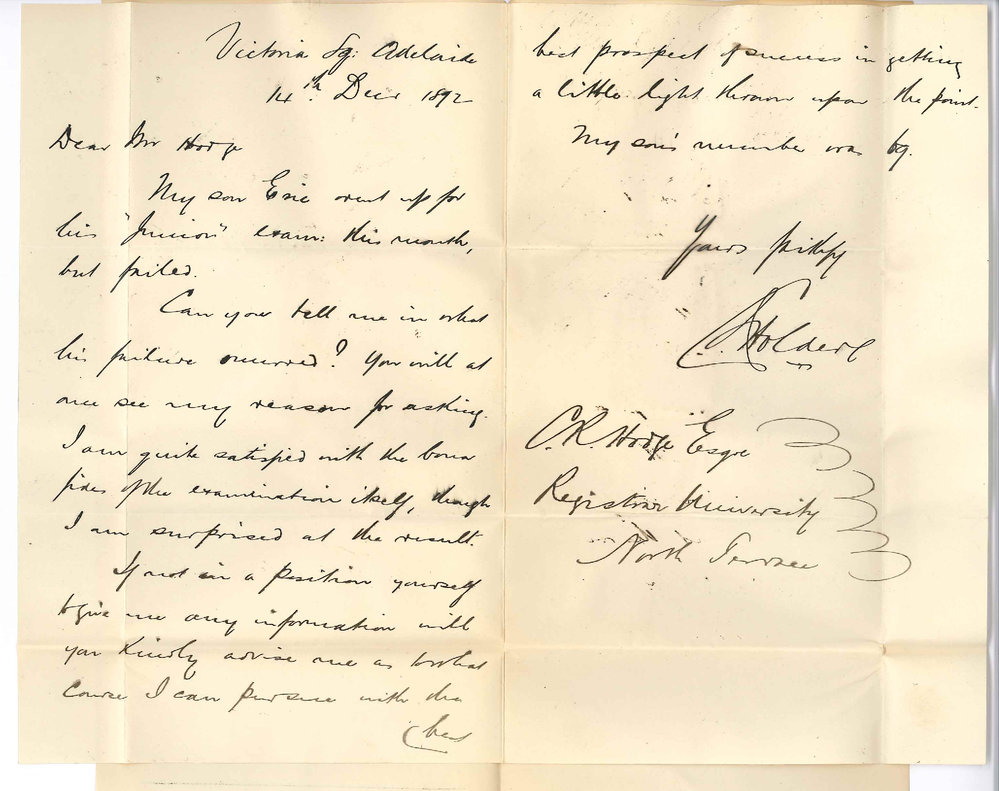 Victoria Sq: Adelaide
14th Decr 1892
Dear Mr Hodge
My son Eric went up for
his "Junior" exam: this month,
but failed.
Can you tell me in what
his failure occurred? You will at
once see my reason for asking.
I am quite satisfied with the bona
fides of the examination itself, though
I am surprised at the result.
If not in a position yourself
to give me any information will
you kindly advise me as to what
course I can pursue with the
(best
best prospect of success in getting
a little light thrown upon the point.
My son's number was 69.
Yours faithfy
Holder
C.R. Hodge Esqre
Registrar University
North Terrace